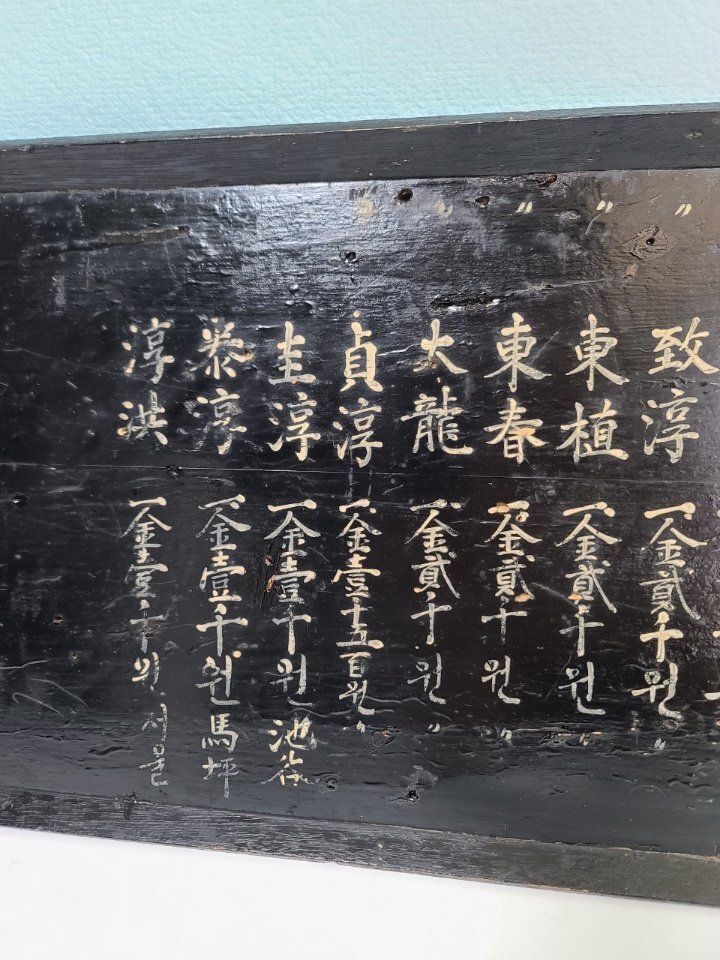 〃 致淳 一金貳千원 〃
〃 東植 一金貳千원 〃
〃 東春 一金貳千원 〃
〃 大龍 一金貳千원 〃
貞淳 一金壹千五百원 〃
圭淳 一金壹千원 池谷
泰淳 一金壹千원 馬坪
淳洪 一金壹千원 서울